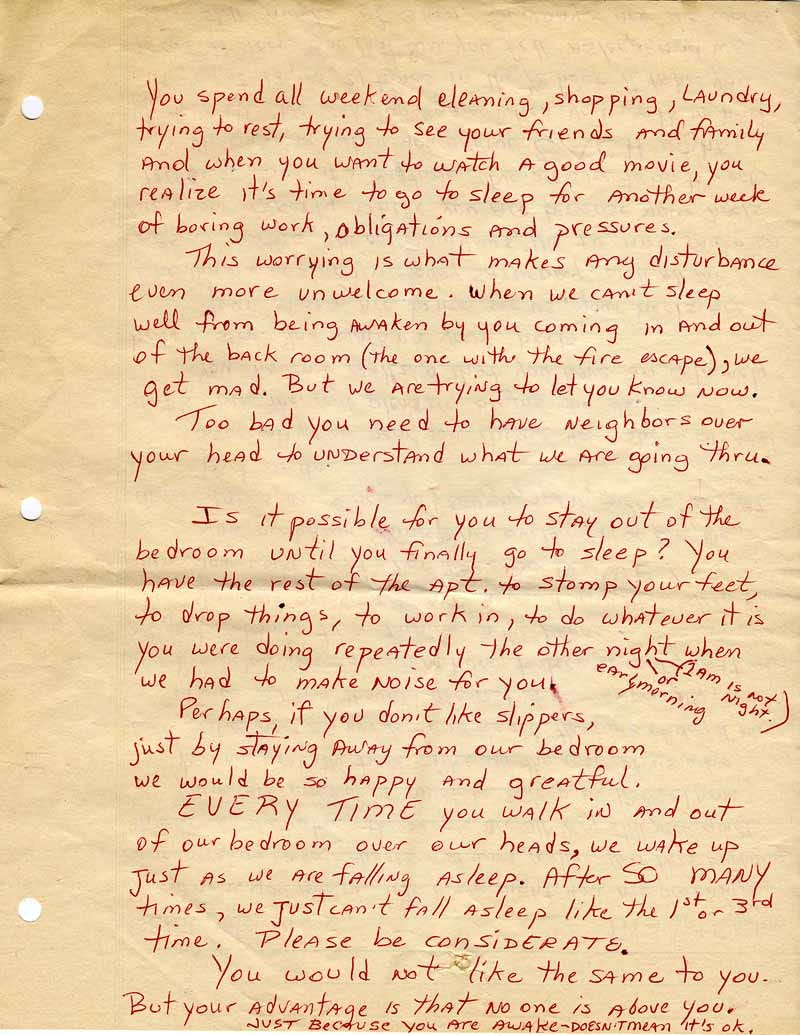 You spend all weekend cleaning, shopping, LAundry,
trying to rest, trying to see your friends And fAmily
And when you wANt to wAtch A good movie, you
reAlize it's time to go to sleep for ANother week
of boring work, obligAtioNs ANd pressures.
This worrying is whAt mAkes ANy disturbANce
even more unwelcome. When we cAN't sleep
well from being AWAken by you coming in ANd out
of the bAck room (the one with the fire escApe), we
get mAd. But we Are trying to let you kNow Now.
Too bAd you need to hAve Neighbors over
your heAd to UNDerstANd what we Are going thru.
Is it possible for you to stAy out of the
bedroom UNtil you finAlly go to sleep? You
hAve the rest of the Apt. to stomp your feet,
to drop things, to work in, to do whAtever it is
you were doing repeAtedly the other night when
or early morning (2Am is Not Night.)
we hAd to mAke Noise for you.
PerhAps, if you don't like slippers,
just by STAyiNg AwAy from our bedroom
we would be so hAppy ANd greAtful.
EVERY TIME you wAlk iN ANd out
of our bedroom over our heAds, we wAke up
just As we Are fAlliNg Asleep. After SO MANY
times, we just cAN't fAll Asleep like the 1st or 3rd
time. PleAse be coNSiDERATE.
You would Not like the sAme to you.
But your ADVANtAge is thAt No one is Above you.
JUST BecAuse you ARe AwAke-DOESN'T meAN it's ok.